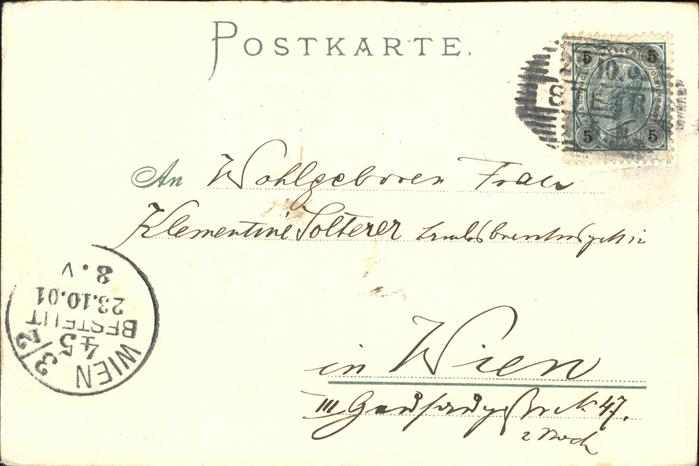 POSTKARTE.
5 5
5 5
An Wohlgeboren Frau
Klementine Solterer
in Wien
III N. 47.
2 Stock
WIEN 3/2
45
BESTELLT
23.10.01
8.V